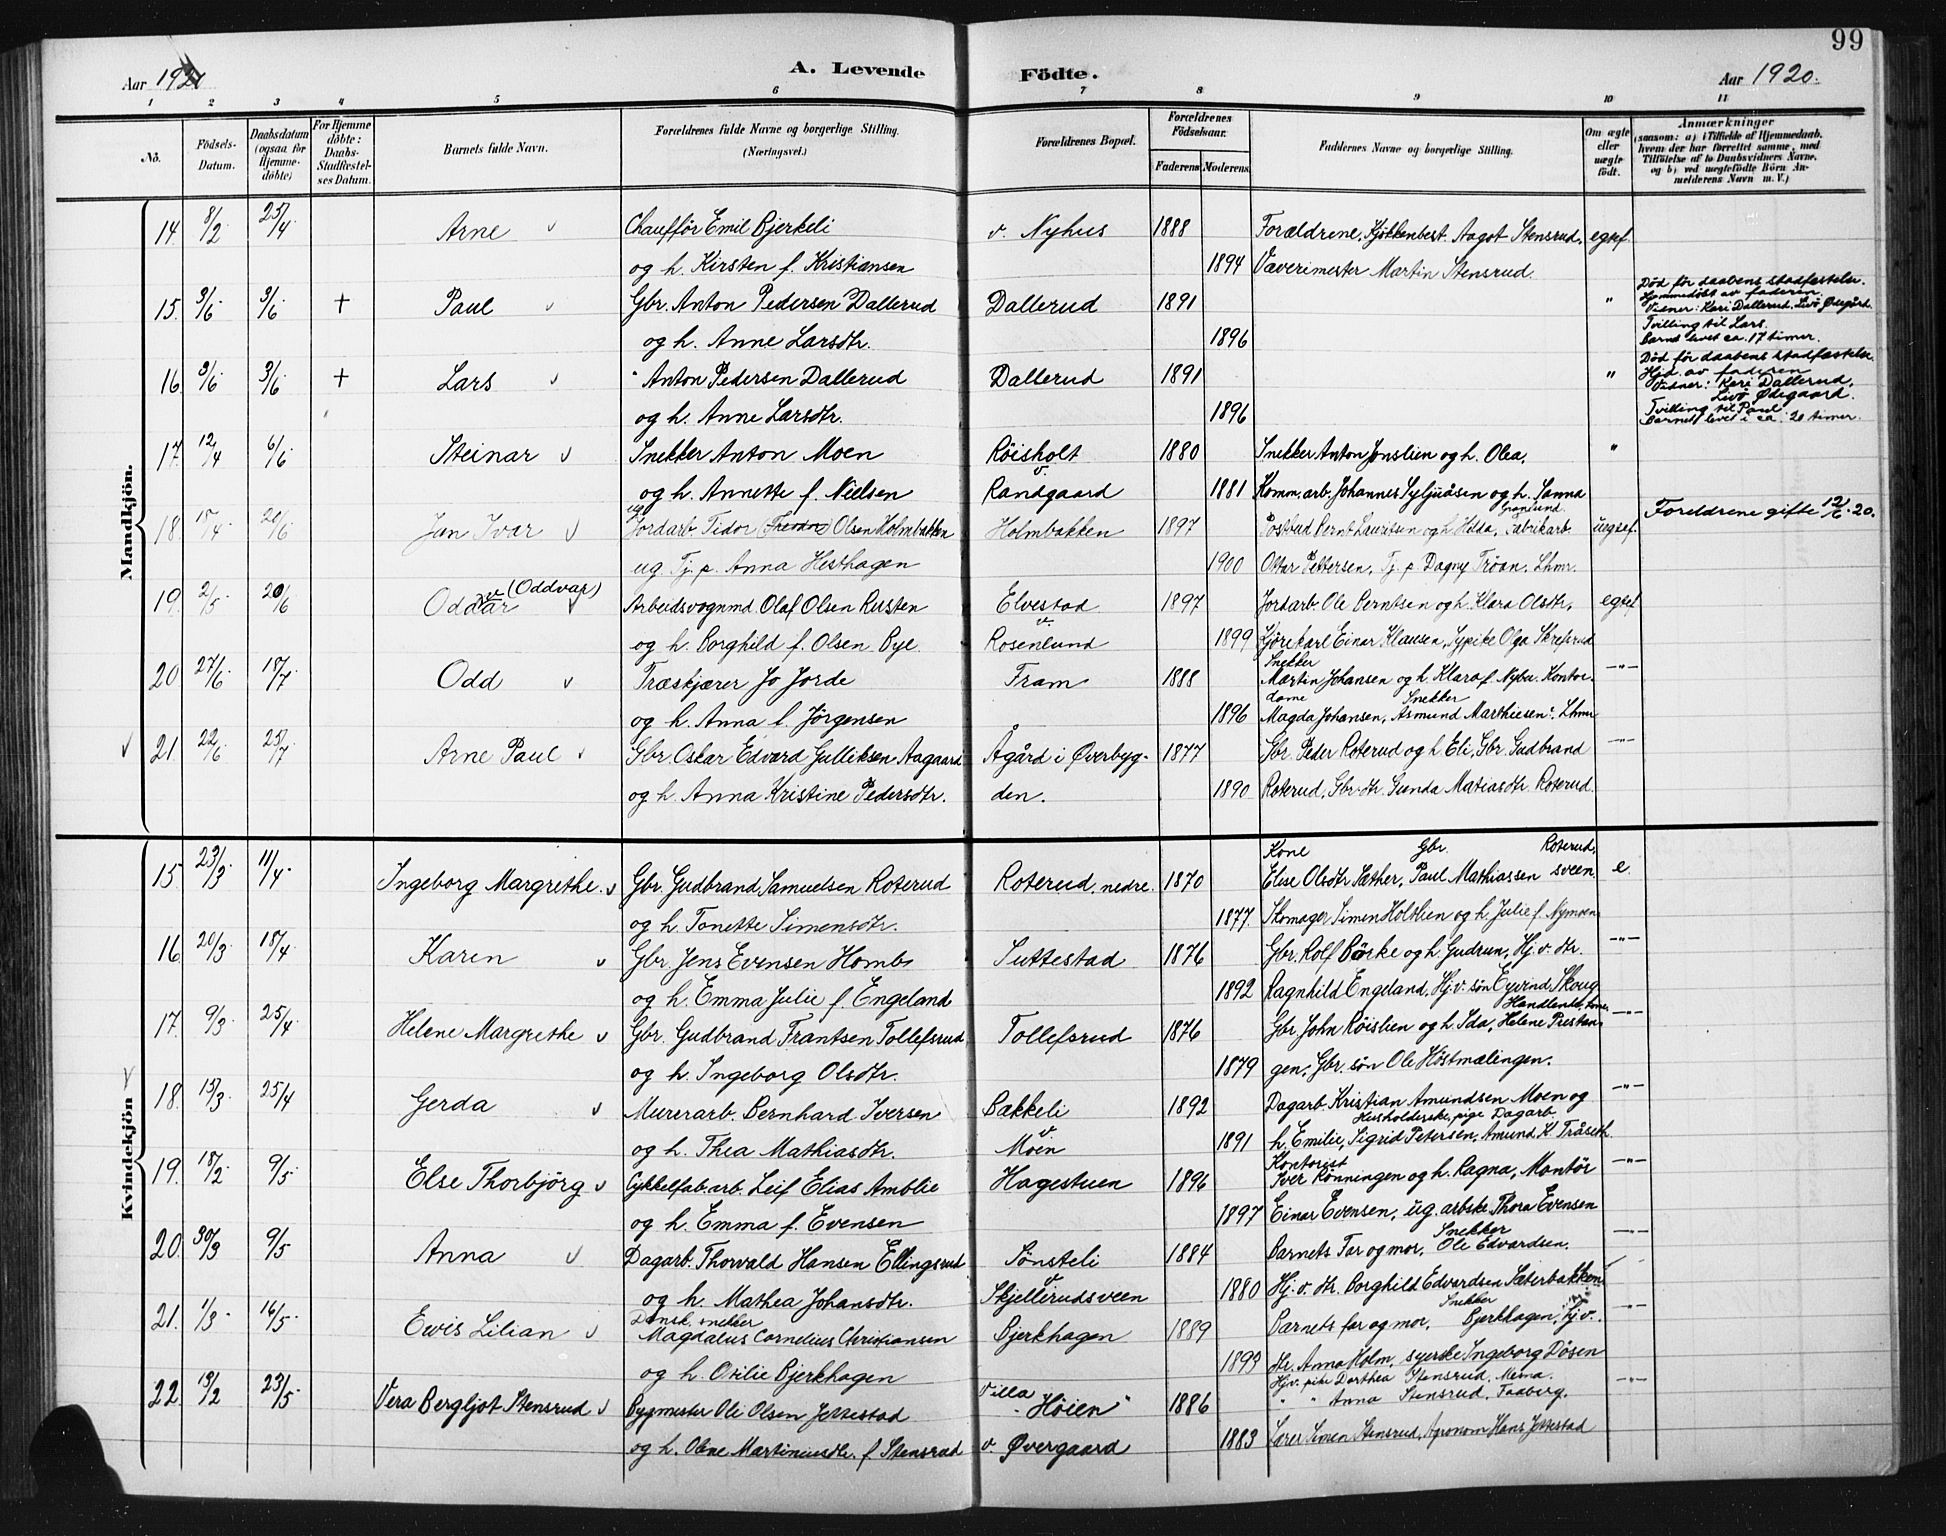 99
Aar 1920
A. Levende Födte.
Aar 1920.
1 2 3 4 5 6 7 8 9 10 11
No.
Födsels-Datum.
Daabsdatum (ogsaa for Hjemme-döbte)
For Hjemme döbte: Daabs-Stadfæstel-ses Datum.
Barnets fulde Navn.
Forældrenes fulde Navne og borgerlige Stilling.
(Næringsvei.)
Forældrenes Bopæl.
Forældrenes Födselsaar.
Faderens Moderens
Faddernes Navne og borgerlige Stilling.
Om ægte eller uægte födt.
Anmærkninger
(saasom: a) i Tilfælde af Hjemmedaab, hvem der har forrettet samme, med Tilföielse af to Daabsvidners Navne, og b) ved uægtefödte Börn An-melderens Navn m. V.)
Mandkjön.
14. 8/2 25/4 Arne Chauffør Emil Bjerkeli v. Nyhus 1888 Forældrene, Kjøkkenbest. Aagot Stensrud, egtef.
og h. Kirsten f. Kristiansen 1894 Væverimester Martin Stensrud.
15. 3/6 3/6 + Paul Gbr. Anton Pedersen Dallerud Dallerud 1891 " Død før daabens stadfæstelse. Hjemmedøbt av faderen. Vidner: Kari Dallerud, Livø Øegård. Tvilling til Lars. Barnet levet ca. 17 timer.
og h. Anne Larsdtr. 1896
16. 3/6 3/6 + Lars " Anton Pedersen Dallerud Dallerud 1891 " Død før daabens stadfæstelse. Hjd. av faderen Vidner: Kari Dallerud, Livø Ødegaard. Tvilling til Paul Barnet levet i ca. 20 timer.
og h. Anne Larsdtr. 1896
17. 12/4 6/6 Steinar Snekker Anton Moen Røisholt 1880 Snekker Anton Jonslien og h. Olea, "
og h. Annette f. Nielsen v. Randgaard 1881 Komm. arb. Johannes Syljuåsen og h. Sanna
18. 15/4 20/6 Jan Ivar ug Jordarb. Tidor (Theodor) Olsen Holmbakken Holmbakken 1897 Postbud Bernt Lauritsen og h. Hilda, Granlund Fabrikarb. uegtef. Foreldrene gifte 12/6.20.
ug. Tj. p. Anna Hesthagen 1900 Ottar Pettersen, Tj. p Dagny Trøan, Lhmr.
19. 2/5 20/6 Oddvar (Oddvar) Arbeidsvognmd. Olaf Olsen Rusten Elvestad 1897 Jordarb. Ole Berntsen og h. Klara Olsdtr, egtef
og h. Borghild f. Olsen Bye v. Rosenlund 1899 Kjørekarl Einar Klausen, Sypike Olga Skrefsrud
20 27/6 18/7 Odd Træskjærer Jo Jorde Fram 1888 Snekker Martin Johansen og h Klara f. Nybu. Kontor- "
og h. Anna f. Jørgensen 1896 dame Magda Johansen, Snekker Asmund Marthiesen. Lhmr
21. 22/6 25/7 Arne Paul Gbr. Oskar Edvard Gulliksen Aagaard Ågård i Øverbyg- 1877 Gbr. Peder Roterud og h Eli, Gbr Gudbrand "
og h. Anna Kristine Pedersdtr. den. 1890 Roterud, Gbr. dtr. Gunda Matiasdtr Roterud.
Kvindekjön
15. 23/3 11/4 Ingeborg Margrethe Gbr. Gudbrand Samuelsen Roterud Roterud, nedre. 1870 Kone Elise Olsdtr Sæther, Gbr. Paul Mathiassen Roterud, sveen e.
og h. Tonette Simensdtr. 1877 Skomager Simen Holtlien og h. Julie f. Nymoen
16. 20/3 18/4 Karen Gbr. Jens Evensen Homb Suttestad 1876 Gbr. Rolf Børke og h. Gudrun, Hj. v. dtr. "
og h. Emma Julie f. Engeland 1892 Ragnhild Engeland, Hj. v. søn Eyvind Skoug
17. 9/3 25/4 Helene Margrethe Gbr. Gudbrand Frantsen Tollefsrud Tollefsrud 1876 Gbr. John Røislien og h. Ida, Helene Prestan- "
og h. Ingeborg Olsdtr. 1879 gen, Gbr. søn Ole Høstmælingen.
18. 15/3 25/4 Gerda Murerarb. Bernhard Iversen Bakkeli 1892 Dagarb. Kristian Amundsen Moen og "
og h. Thea Mathiasdtr. v. Moen 1891 h. Emilie, Husholderske, pige Sigrid Petersen, Dagarb. Amund K. Tråseth.
19. 18/2 9/5 Else Thorbjörg Cykkelfab. arb. Leif Elias Amblie Hagestuen 1896 Kontorist Iver Rønningen og h. Ragna, Montör "
og h. Emma f. Evensen 1897 Einar Evensen, ug. arbske Thora Evensen
20. 30/3 9/5 Anna Dagarb. Thorvald Hansen Ellingsrud Sønsteli 1884 Barnets Far og mor, Snekker Ole Edvardsen. "
og h. Mathea Johansdtr. v Skjellerudsveen 1880 Hj. v. dtr. Borghild Edvardsen Sæterbakken
21. 1/3 16/5 Ewis Lilian Dansk. snekker Magdalus Cornelius Christiansen Bjerkhagen 1889 Barnets far og mor, Snekker Bjerkhagen, hj. v. "
og h. Otilie Bjerkhagen 1893 dtr. Anna Holm, syerske Ingeborg Døsen
22. 13/2 23/5 Vera Bergljot Stensrud Bygmester Oli Olsen Jettestad Villa "Høien" 1886 Hjv. pike Dorthea Stensrud, Mesna. " " Anna Stensrud, Faaberg. "
og h. Oline Martiniusdtr. f. Stensrud v. Øvergaard 1883 Lærer Simen Stensrud, Agronom Hans Jettestad